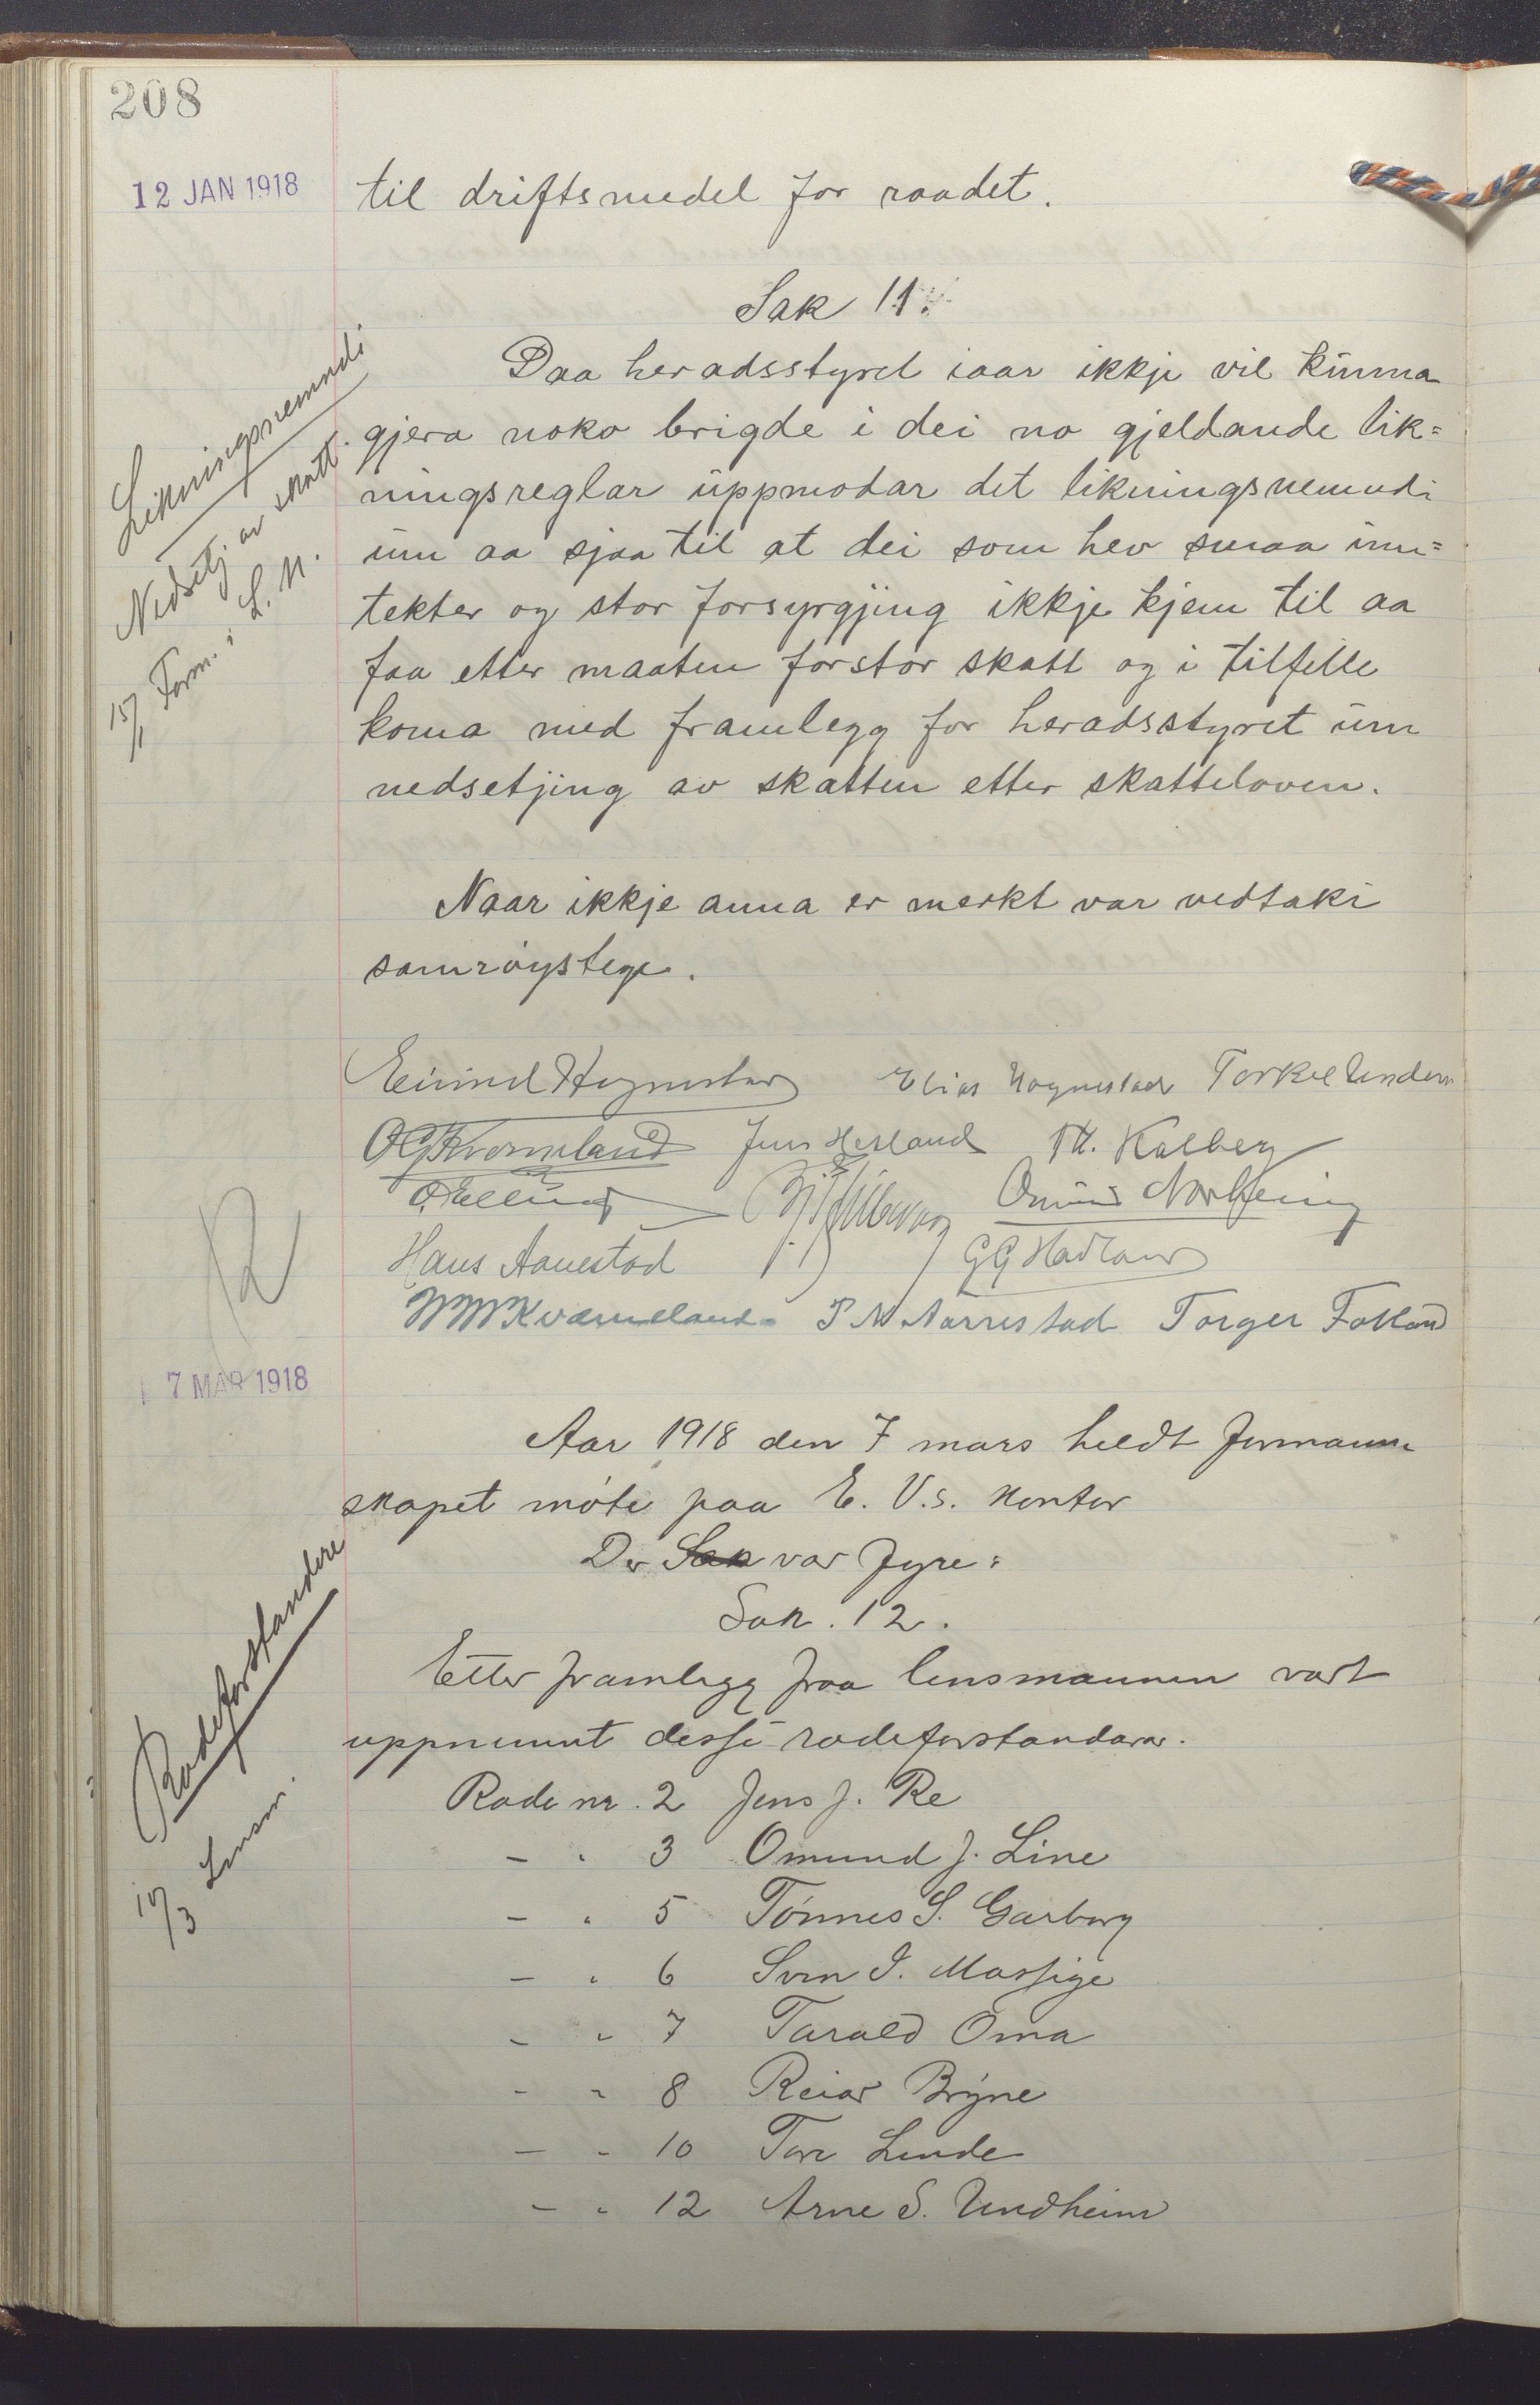 208
12 JAN 1918
til driftsmedel for raadet.
Sak 11.
Likningsnemndi
Nedsetj. av skatt.
15/1 Form. i L. N.
Daa heradsstyret iaar ikkje vil kunna
gjera noko brigde i dei no gjeldande lik=
ningsreglar uppmodar det likningsnemndi
um aa sjaa til at dei som hev smaa inn=
tekter og stor forsyrgjing ikkje kjem til aa
faa etter maaten forstor skatt og i tilfelle
koma med framlegg for heradsstyret um
nedsetjing av skatten etter skatteloven.
Naar ikkje anna er merkt var vedtaki
samrøystege.
Eivind Hognestad Elias Hognestad Torkel Undem
O G Kverneland Jens Herland Th. Kalberg
O. Elling Omund Norheim
Hans Aanestad G G Hadland
M M Kværneland P N Aarrestad Torger Fotland
7 MAR 1918
Aar 1918 den 7 mars heldt formann
skapet møte paa E. V.s. kontor
Der Sak var fyre:
Sak. 12.
Rodeforstandere
10/3 Lensm.
Etter framlegg fraa lensmannen vart
uppnemnt desse rodeforstandarar.
Rode nr. 2 Jens J. Re
- " 3 Omund J. Line
- " 5 Tønnes S. Garborg
- " 6 Sven I. Mossige
- " 7 Tarald Oma
- " 8 Reiar Bryne
- " 10 Tore Lende
- " 12 Arne S. Undheim